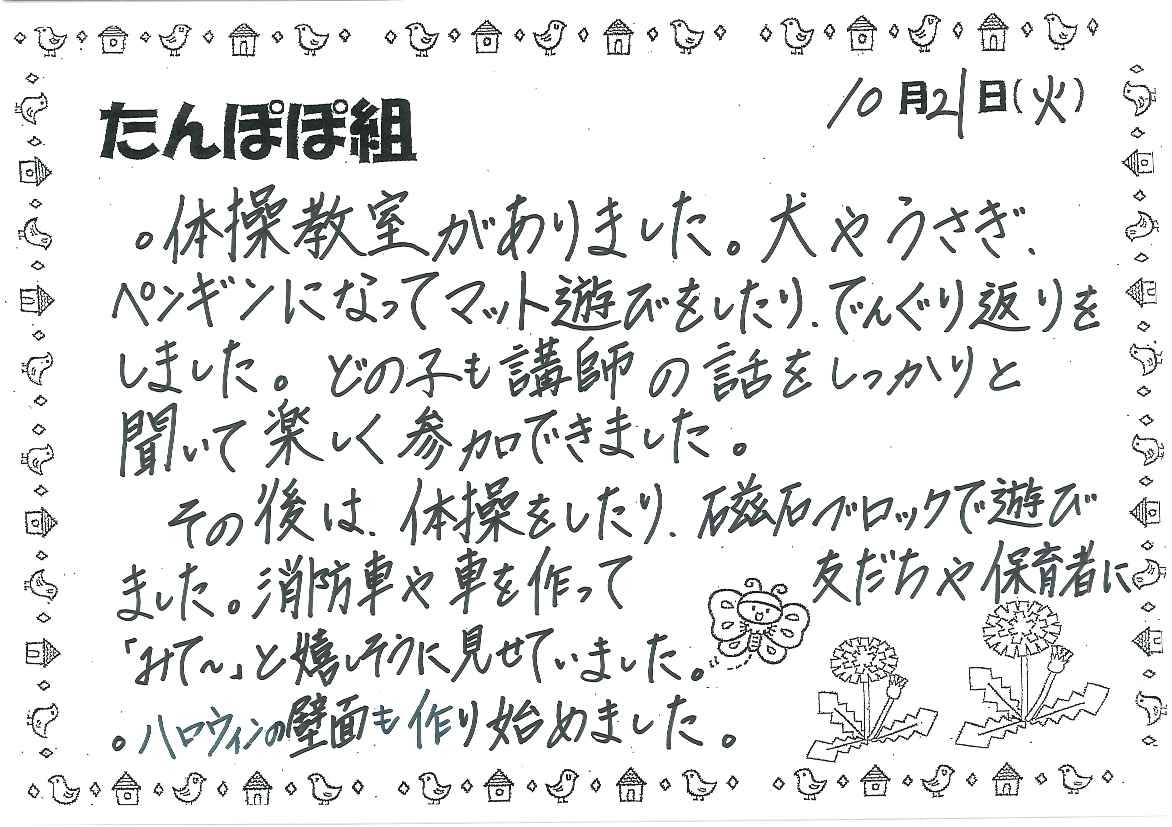 たんぽぽ組
10月21日(火)
。体操教室がありました。犬やうさぎ、
ペンギンになってマット遊びをしたり、でんぐり返りを
しました。どの子も講師の話をしっかりと
聞いて楽しく参加できました。
その後は、体操をしたり、磁石ブロックで遊び
ました。消防車や車を作って 友だちや保育者に
「みて～」と嬉しそうに見せていました。
。ハロウィンの壁面も作り始めました。